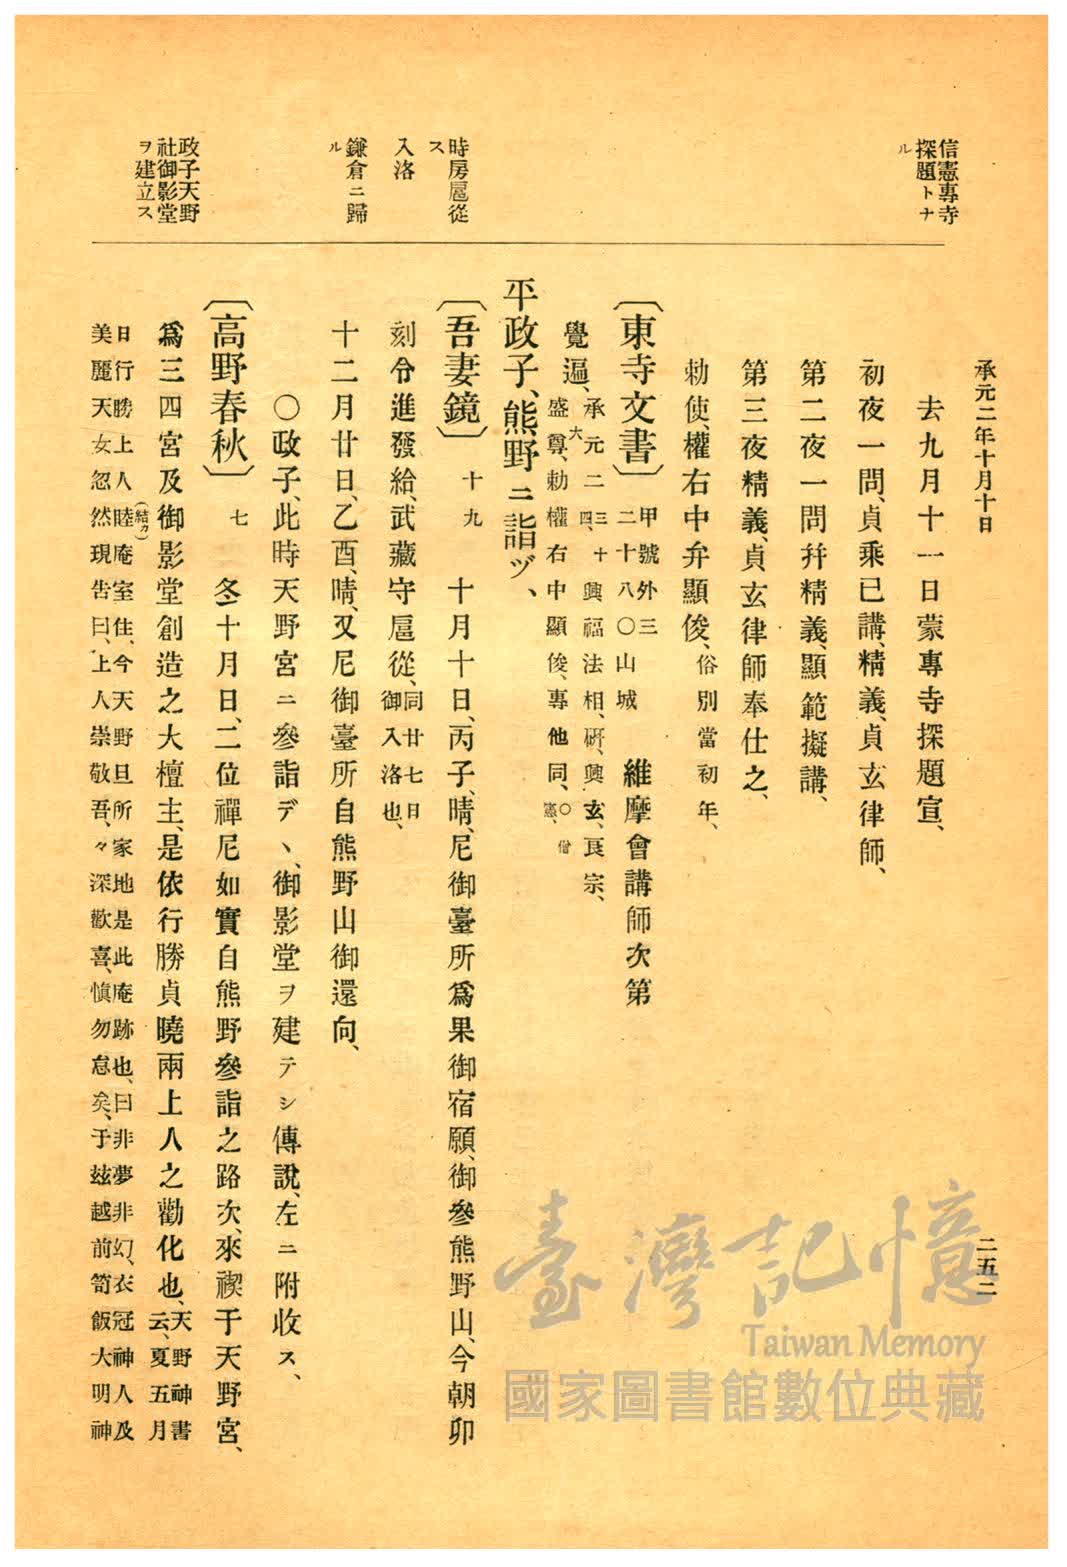 承元二年十月十日
二五二
信憲專寺
探題トナ
ル
時房扈從
ス
入洛
鎌倉ニ歸
ル
政子天野
社御影堂
ヲ建立ス
去九月十一日蒙專寺探題宣、
初夜一問、貞乘已講、精義、貞玄律師、
第二夜一問幷精義、顯範擬講、
第三夜精義、貞玄律師奉仕之、
勅使、權右中弁顯俊、俗別當初年、
〔東寺文書〕甲號外三
二十八〇山城
維摩會講師次第
覺遍、承元二三十興福法相、硏、興玄、良宗、
盛尊、六四、勅權右中顯俊、專他同、〇僧
憲、
平政子、熊野ニ詣ヅ、
〔吾妻鏡〕十九 十月十日、丙子、晴、尼御臺所爲果御宿願、御參熊野山、今朝卯
刻令進發給、武藏守扈從、同廿七日
御入洛也、
十二月廿日、乙酉、晴、又尼御臺所自熊野山御還向、
〇政子、此時天野宮ニ參詣デヽ、御影堂ヲ建テシ傳說、左ニ附收ス、
〔高野春秋〕七 冬十月日、二位禪尼如實自熊野參詣之路次、來禊于天野宮、
爲三四宮及御影堂創造之大檀主、是依行勝貞曉兩上人之勸化也、天野神書
云、夏五月
日行勝上人睦(結カ)庵室住、今天野旦所家地是此庵跡也、曰非夢非幻、衣冠神人及
美麗天女忽然現告曰、上人崇敬吾、々深歡喜、愼勿怠矣、于玆越前笥飯大明神
臺灣記憶
Taiwan Memory
國家圖書館數位典藏